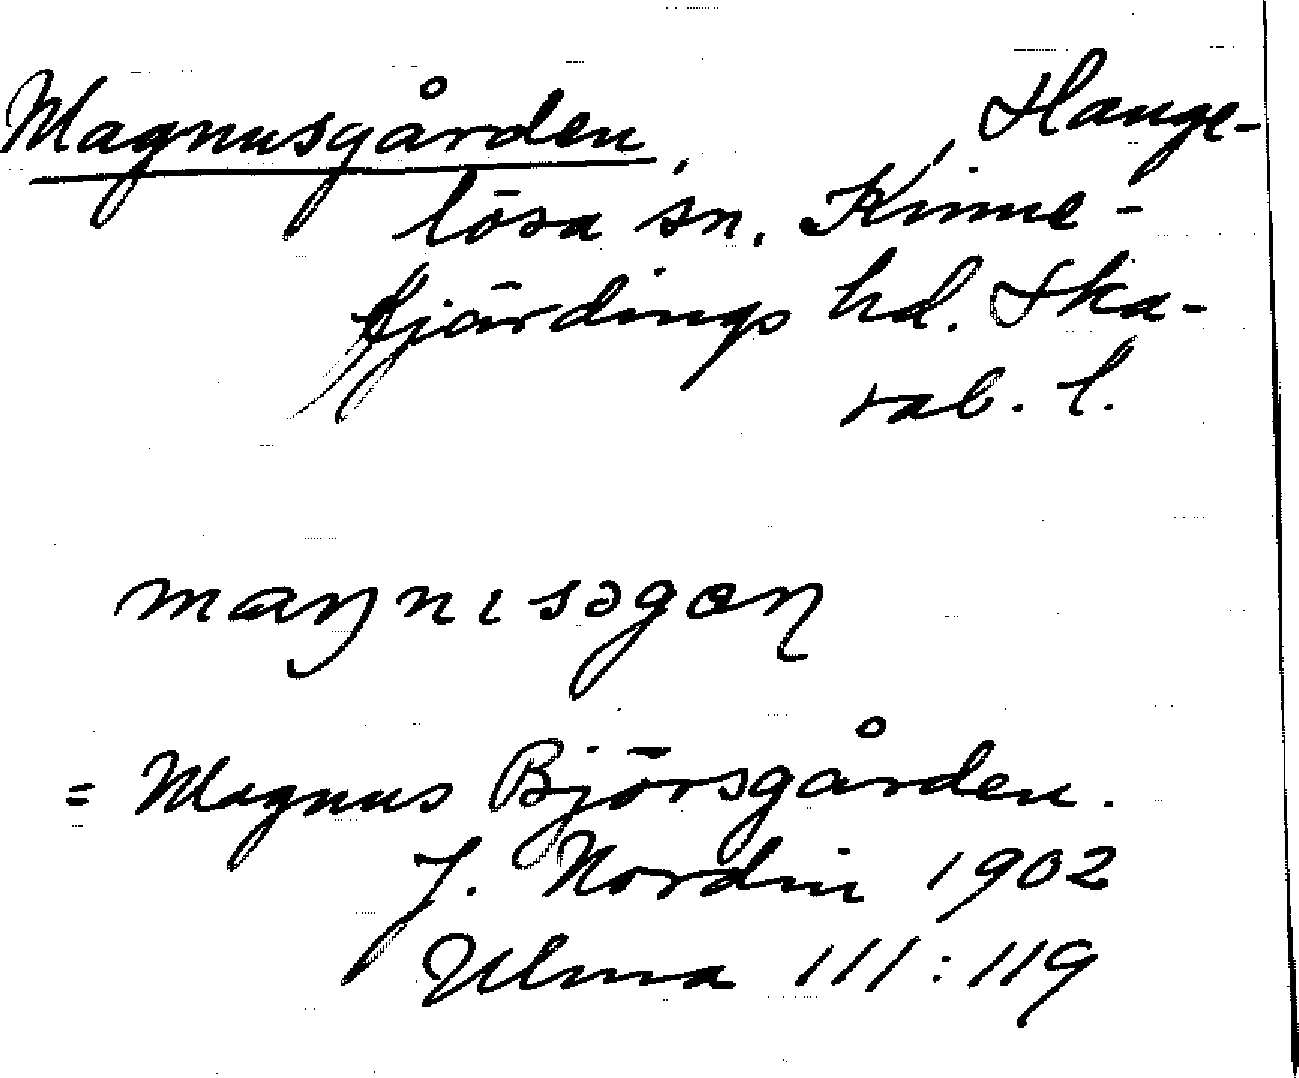 Magnusgården, Hange-
lösa sn, Kinne-
fjärdings hd. Ska-
rab. l.
maŋnısəgɑɳ
= Magnus Björsgården.
J. Nordin 1902
Ulma 111:119